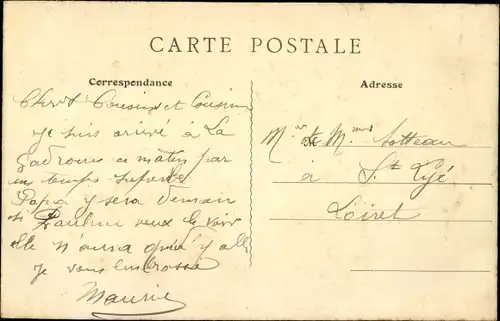 CARTE POSTALE
Correspondance
Adresse
Chers Cousins et Cousine
je suis arrivé à La
a matin par
un temps superbe
Papa y sera demain
si Pauline veux le voir
elle n'aura qu'à y allé
je vous embrasse
Maurice
Mr & Mme Sotteau
à St Lyé
Loiret